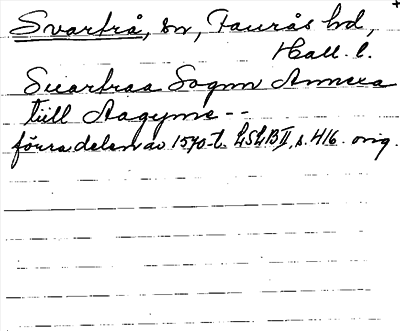 Svartrå, sn, Faurås hd,
Hall. l.
Suartraa Sogn Annexa
till Aagyme --
förra delen av 1570-t. LSLB II, s. 416. orig.